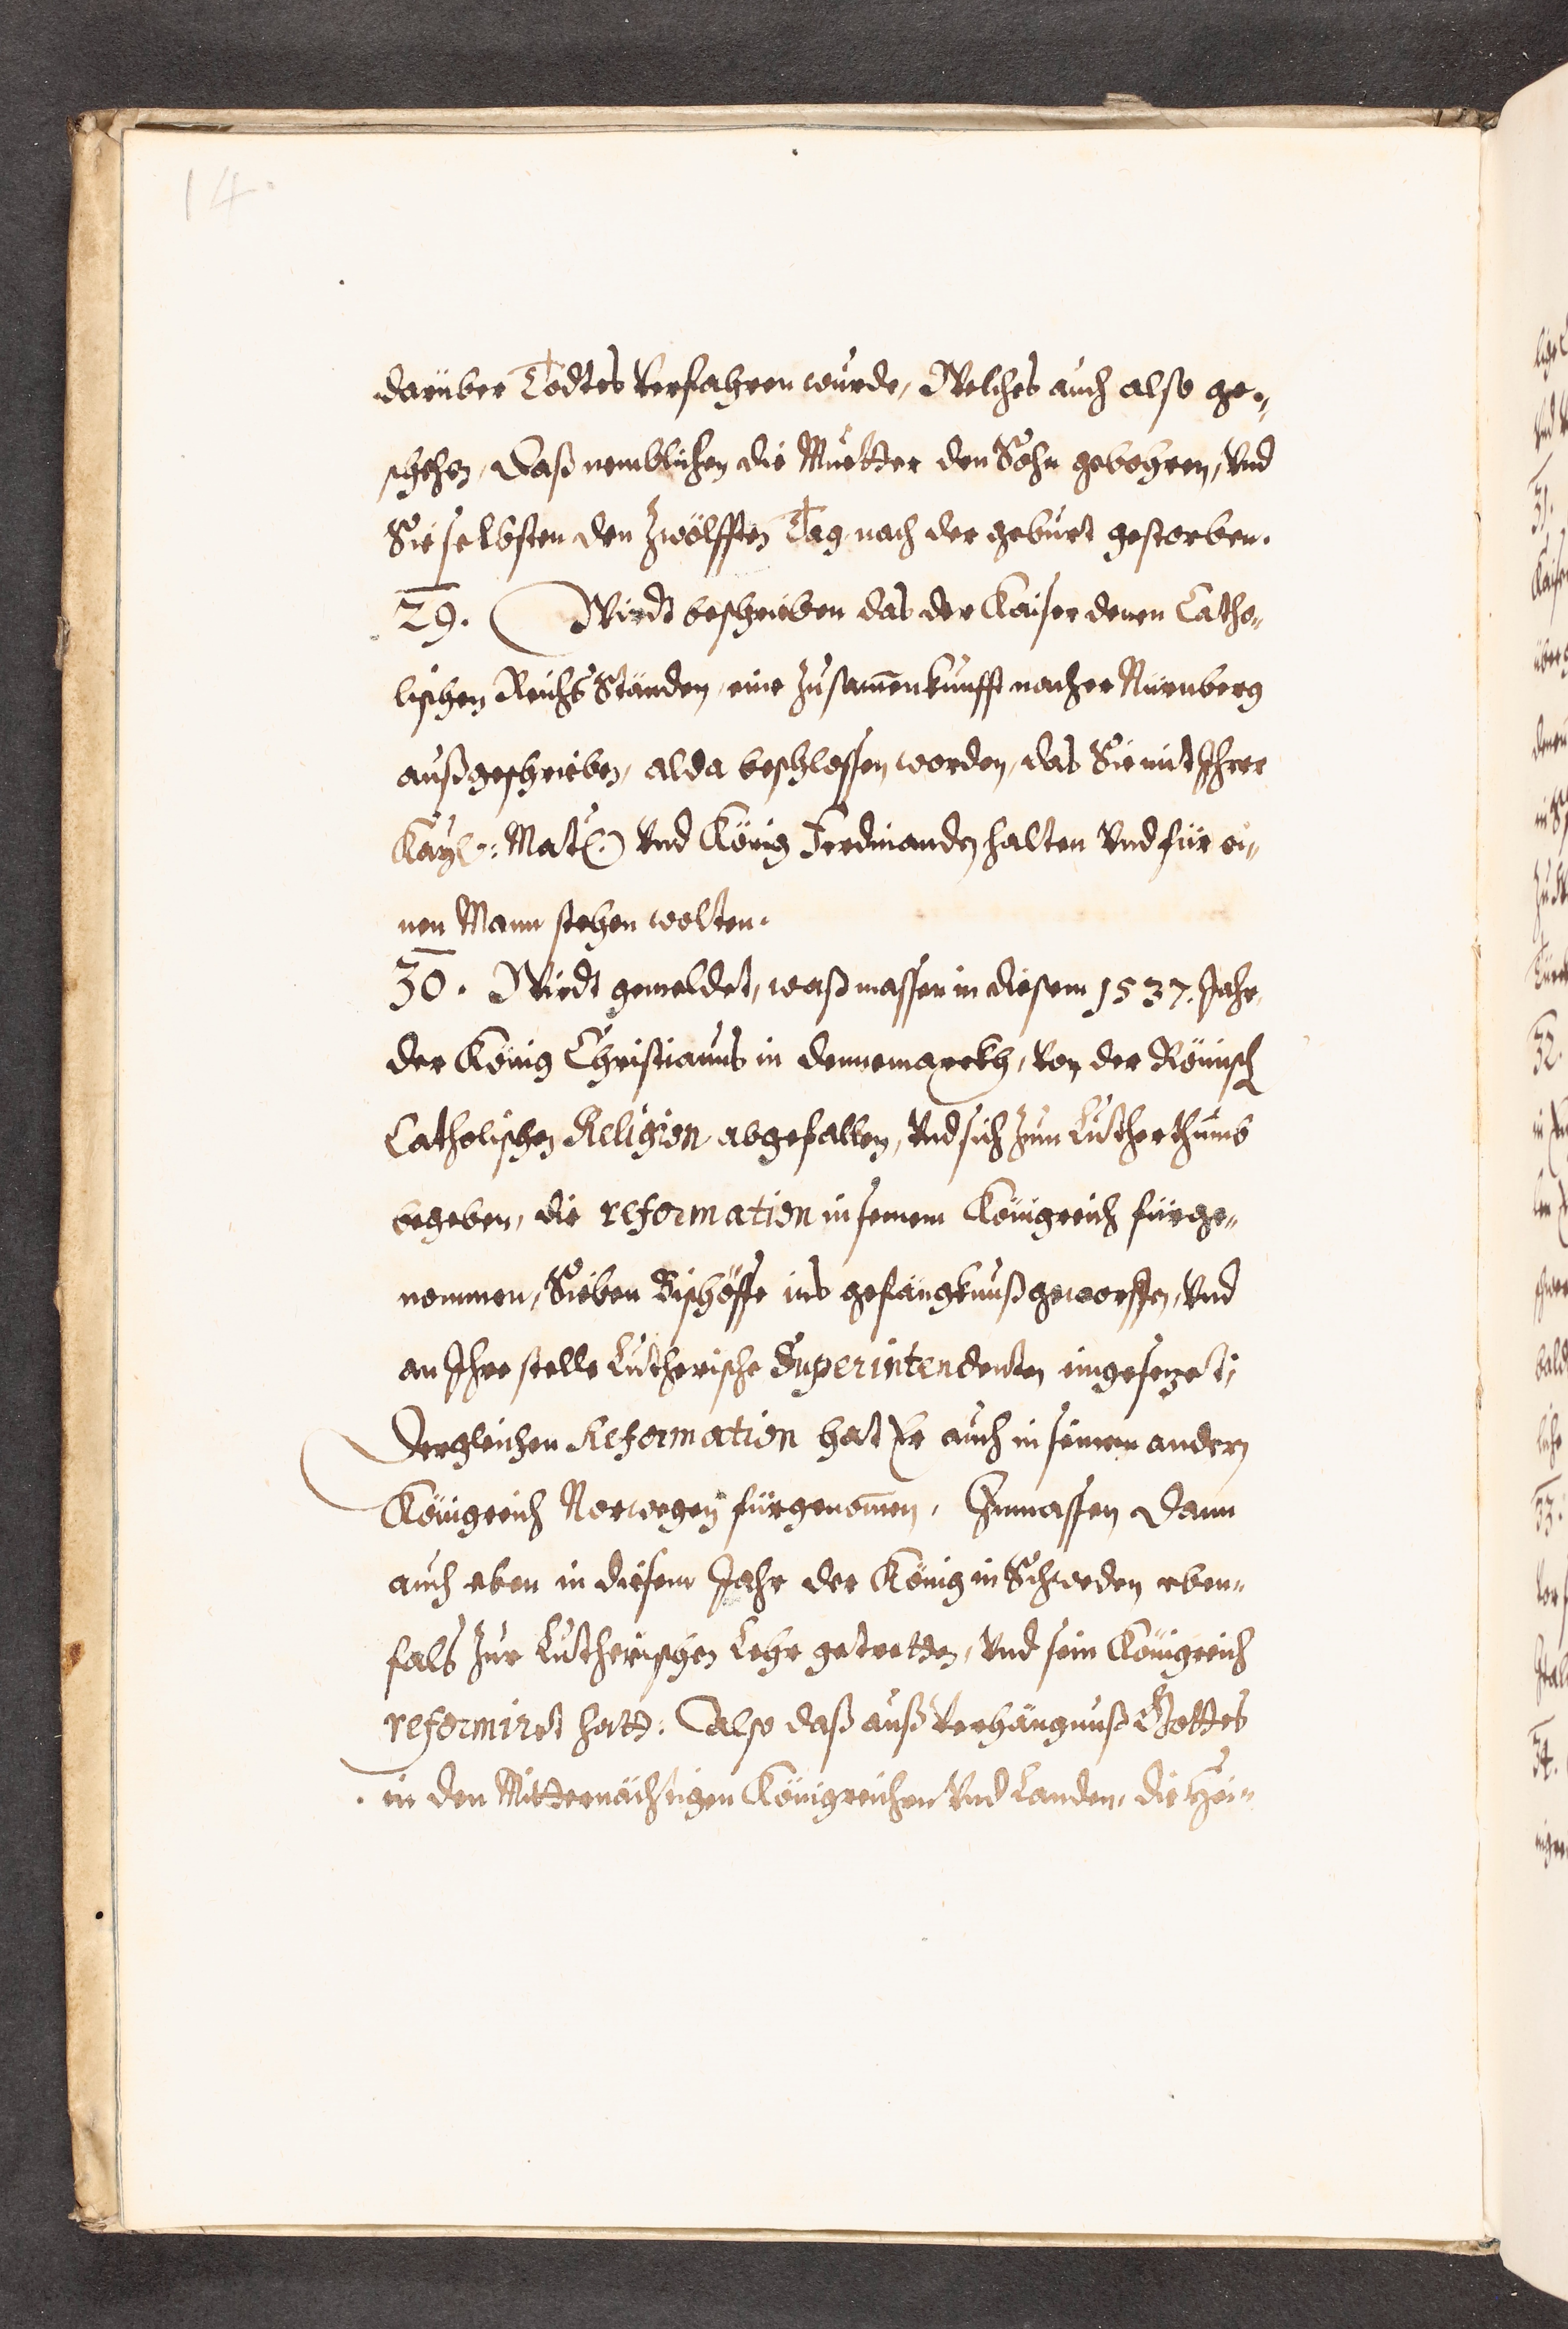 14.
darüber Todtes verfahren wurde, Welches auch also ge„
schehen, Daß nemblichen die Muetter den Sohn gebohren, vnd
Sie selbsten den Zwölfften Tag nach der geburt gestorben.
29. Wirdt beschrieben das der Kaiser denen Catho„
lischen Reichs Ständen, eine Zusam̅enkunfft nacher Nürnberg
außgeschrieben, alda beschlossen worden, das Sie mit Ihrer
Kayl: Matt: vnd König Ferdinanden halten vnd für ei„
nen Mann stehen wolten.
30. Wirdt gemeldet, waßmassen in diesem 1537. Jahr,
der König Christianus in Dennemarckh, von der Römisch
Catholischen Religion abgefallen, vnd sich zum Lutherthumb
begeben, die reformation in seinem Königreich fürge„
nommen, Sieben Bischöffe ins gefängknuß geworffen, vnd
an Ihre stelle Lutherische Superintendenten eingesezet;
Dergleichen Reformation hat Er auch in seinen andern
Königreich Norwegen fürgenom̅en, Inmassen Dann
auch eben in diesem Jahr der König in Schweden eben„
fals zur Lutherischen Lehr getretten, vnd sein Königreich
reformiret hatt: Also daß auß Verhängnuß Gottes
in den Mitternächtigen Königreichen vnd Landen, die Hei„
31.
32.
33.
34.